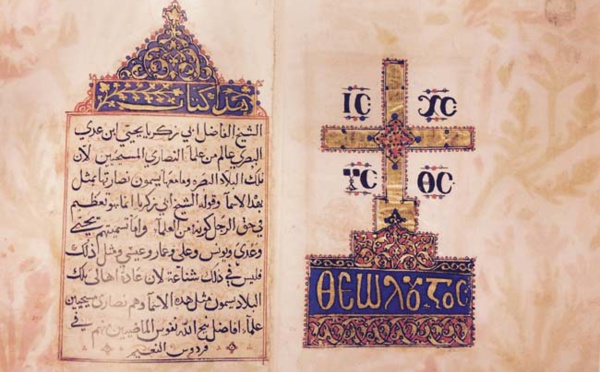 هذا كتاب
الشيخ الفاضل ابي زكريا يحيى ابن عدي
البصري عالم من علماء النصارى المسيحيين لان
تلك البلاد البصره وما معها يسمون نصارتها بمثل
هذا الاسماء وقوله الشيخ ابي زكريا تعظيم
في حق الرجل كونه من العلماء واما تسميتهم يحيى
وعدي ويونس وعلي وعمار وعيسى ومثل ذلك
فليس في ذلك شناعة لان عادة اهالي تلك
البلاد يسمون مثل هذه الاسماء وهم نصارى مسيحيين
علماء افاضل نيح الله نفوس الماضيين منهم في
فردوس النعيم
ⲓⲥ ⲭⲥ
ⲩⲥ ⲑⲥ
ⲑⲉⲱⲗⲟⲅⲟⲥ